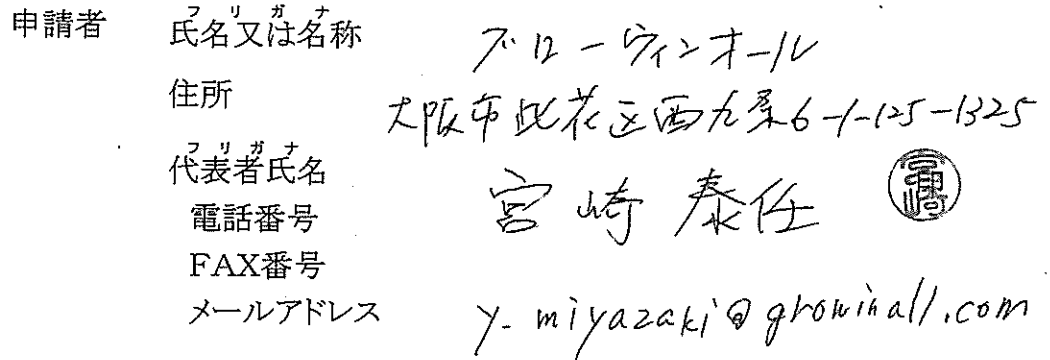 申請者 フリガナ
氏名又は名称 グローウィンオール
住所 大阪市此花区西九条6-1-125-1325
フリガナ
代表者氏名 宮崎 泰任 宮崎
電話番号
FAX番号
メールアドレス y-miyazaki@growinall.com